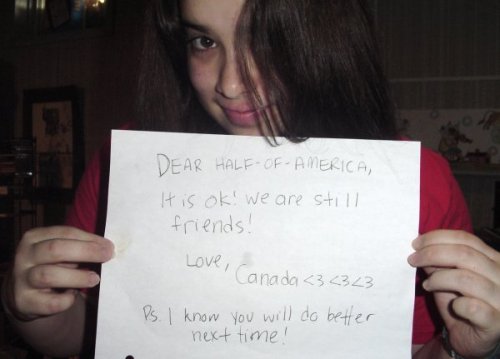 DEAR HALF-OF-AMERICA,
It is ok! we are still
friends!
LOVE,
Canada <3 <3 <3
Ps. I know you will do better
next time!